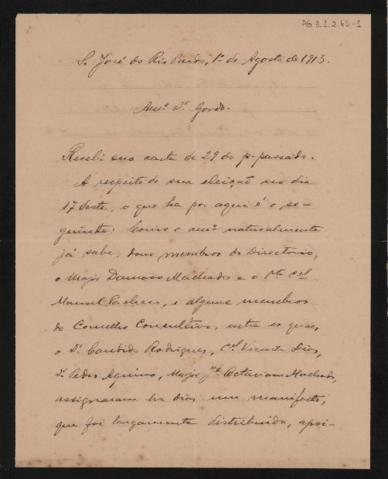 AG 3.1.2.65-1
S. José do Rio Pardo, 1º de Agosto de 1913.
Amº. Dr. Gordo.
Recebi sua carta de 29 do p. passado.
A respeito de sua eleição no dia
17 deste, o que ha por aqui é o se-
guinte: Como o amº naturalmente
já sabe, dous membros do Directorio,
o Major Damaso Machado e o
Manoel e alguns membros
do Conselho Consultivo, entre os quaes,
o Dr. Candido Rodrigues, Cel. Vicente Dias,
Dr. Pedro Aquino, Major Octaviano Machado,
assignaram ha dias um manifesto,
que foi largamente distribuido, apoi-